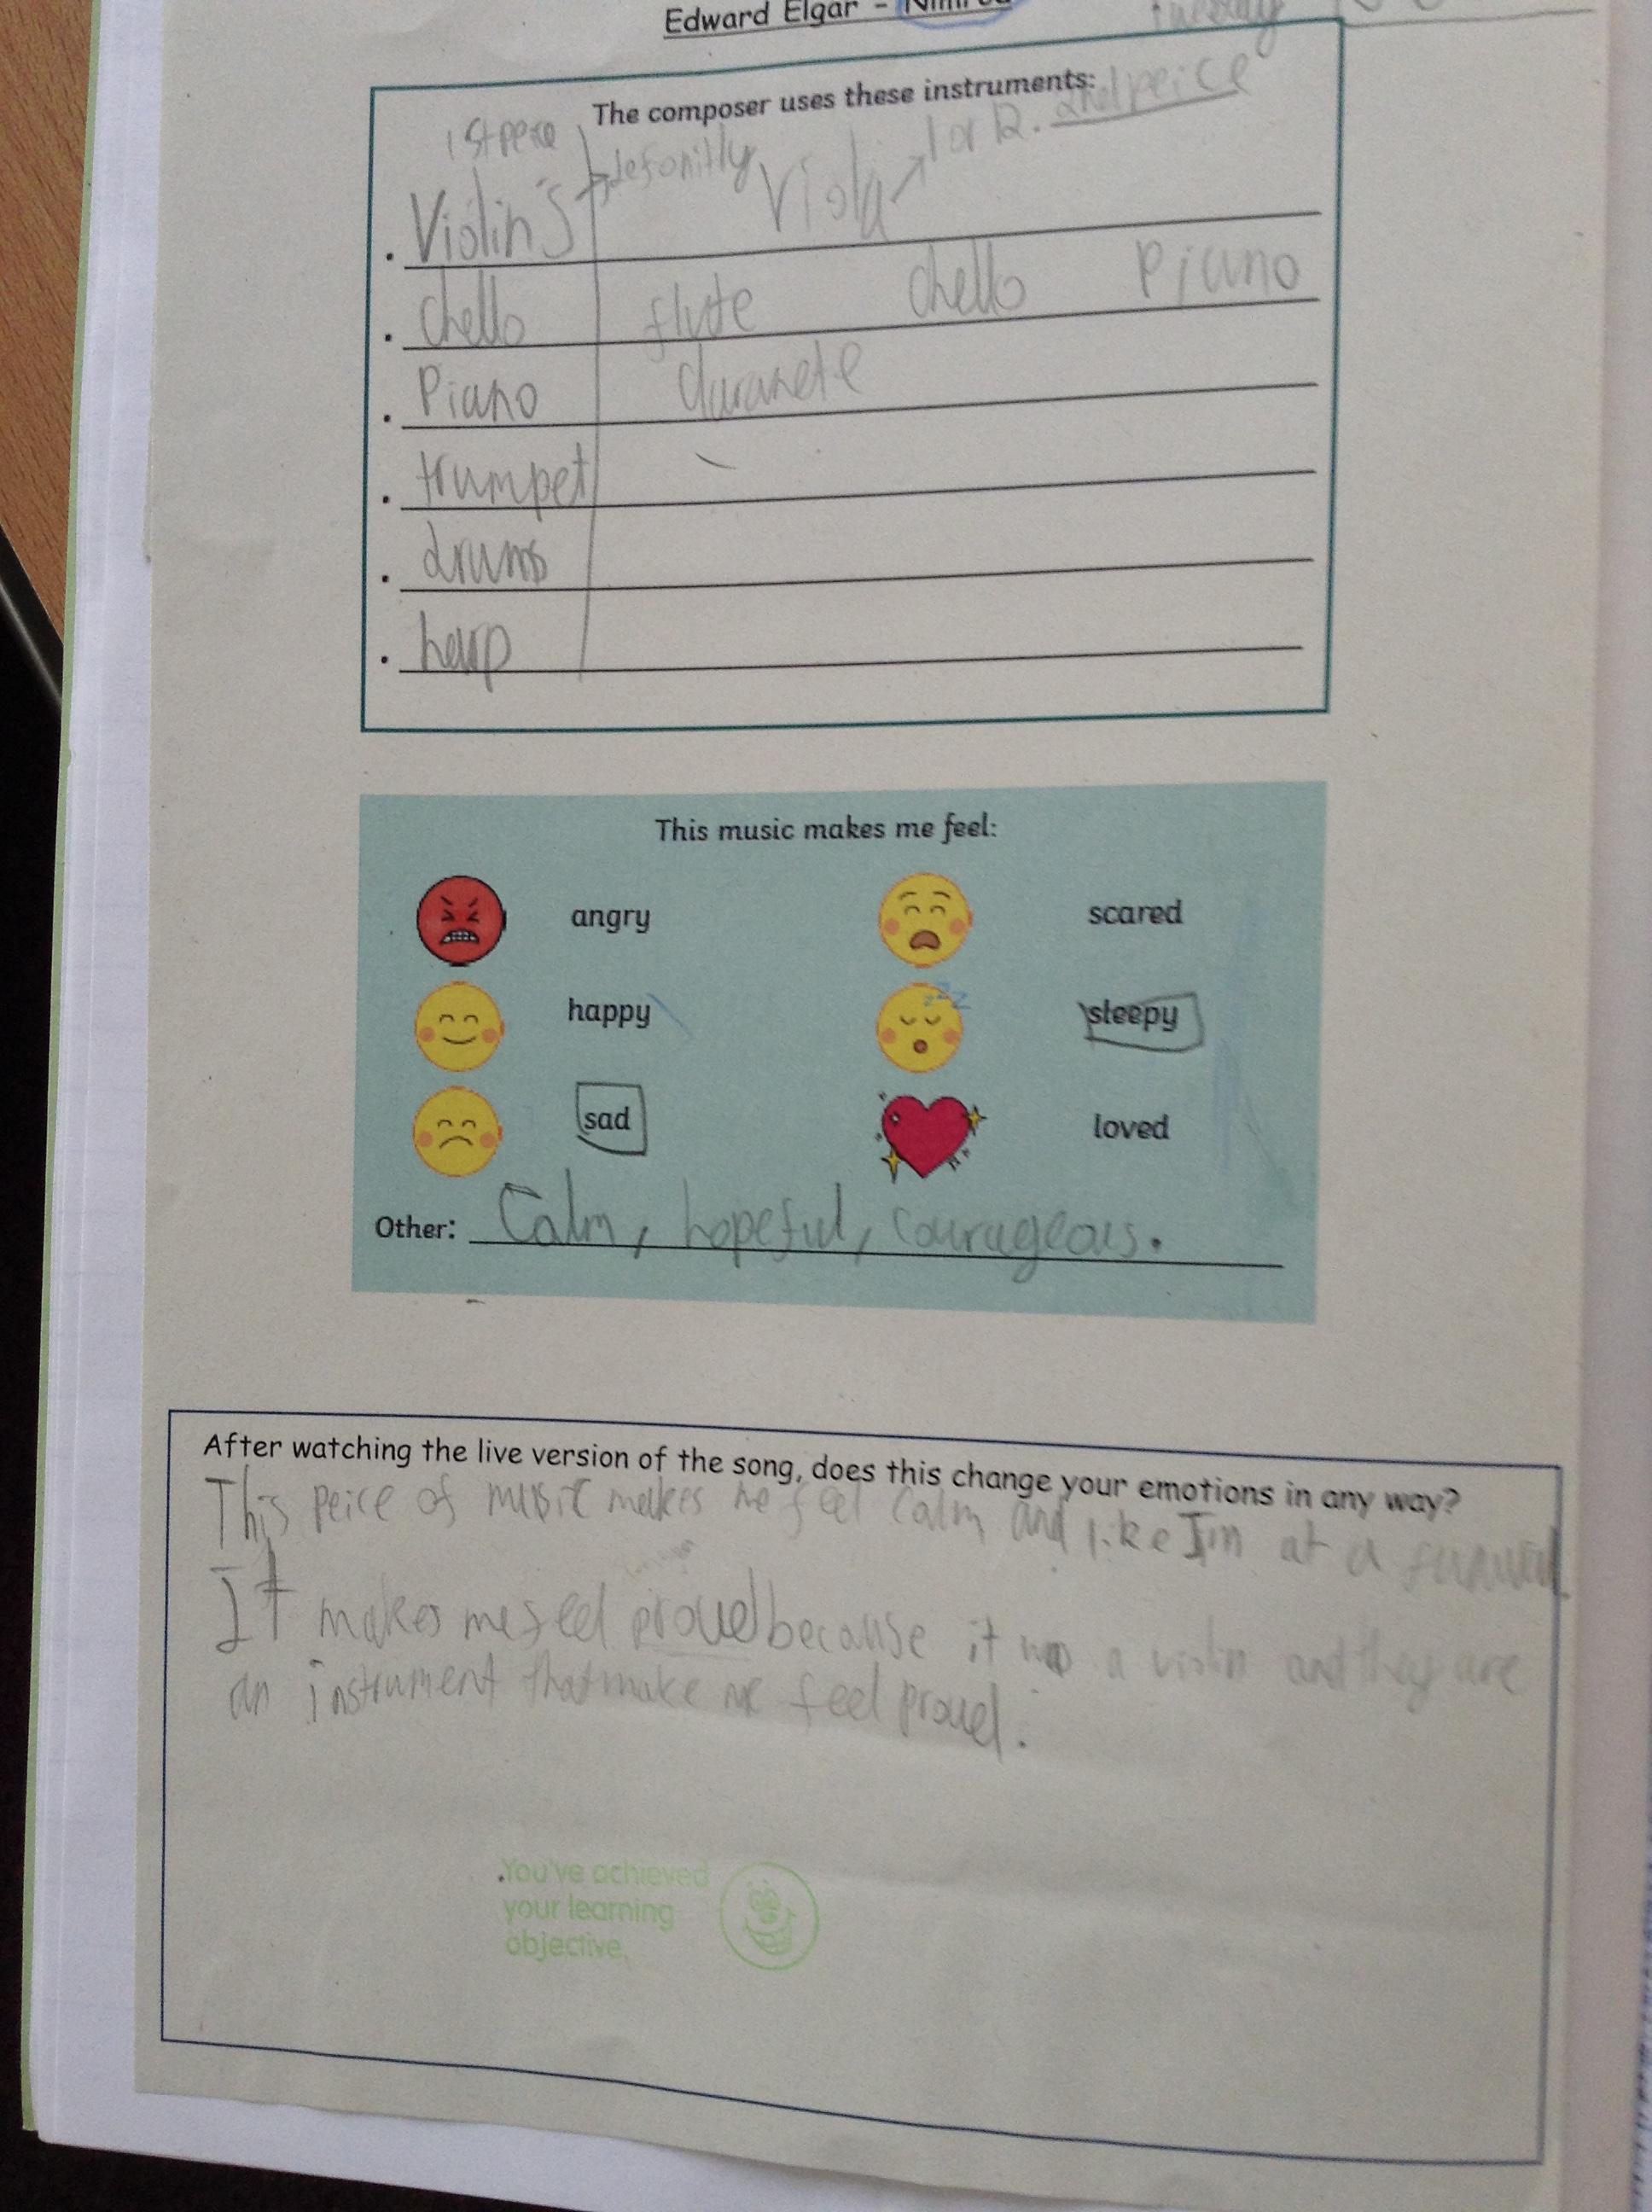 Edward Elgar - Nimrod
The composer uses these instruments:
1st peice
2nd peice
Violin's → defonitly Viola → 1 or 2.
chello flute chello Piano
Piano claranete
trumpet
drums
harp
This music makes me feel:
angry scared
happy sleepy
sad loved
Other: Calm, hopeful, courageous.
After watching the live version of the song, does this change your emotions in any way?
This peice of music makes me feel calm and like I'm at a
It makes me feel proud because it was a violin and they are
an instrument that make me feel proud.
You've achieved
your learning
objective.